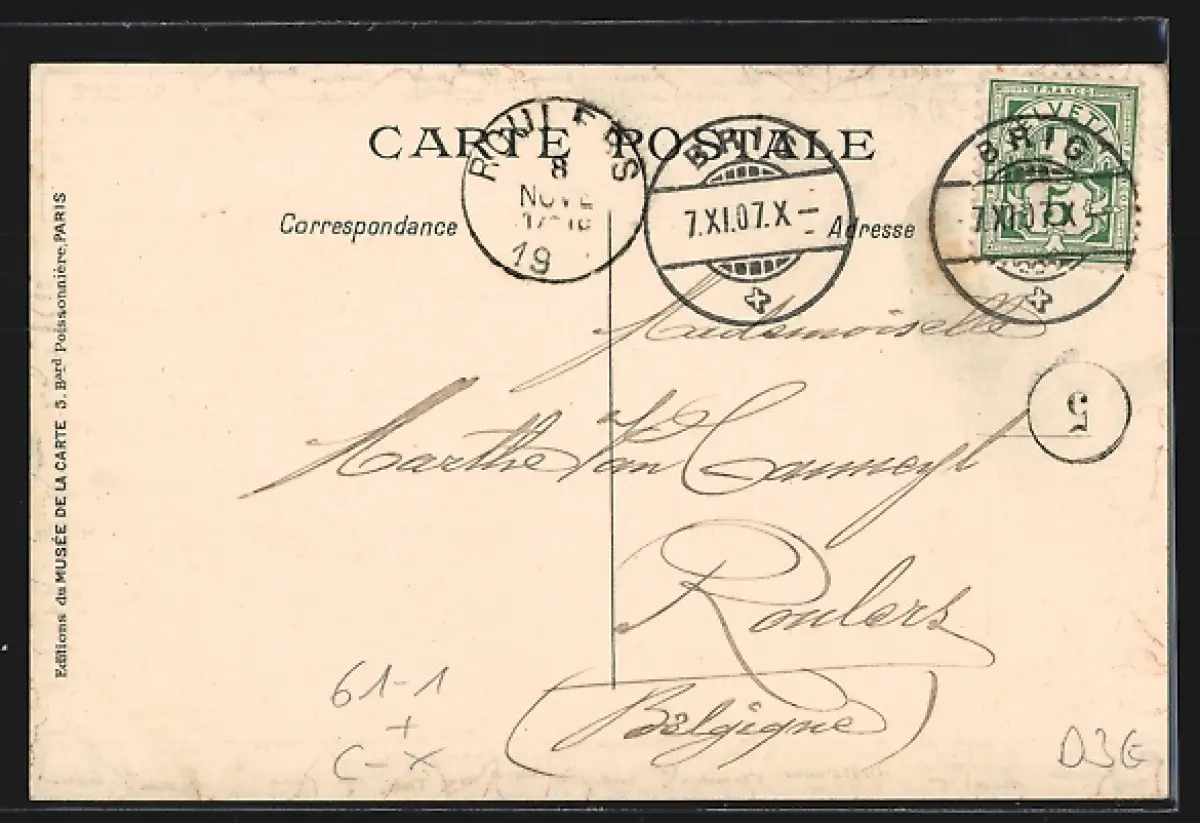 CARTE POSTALE
ROULERS
8
NOVE
19
BRIG
7.XI.07.X-
FRANCO
HELVETIA
5
BRIG
7.XI.07.X-
Correspondance
Adresse
Mademoiselle
5
Marthe Van
Roulers
(Belgique)
61-1
+
C-X
D3G
Editions du MUSÉE DE LA CARTE 3. Bard Poissonnière, PARIS